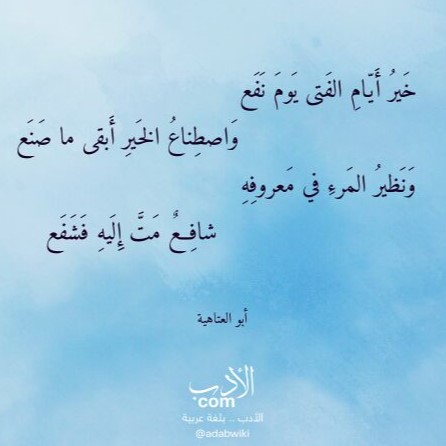 خَيرُ أَيّامِ الفَتى يَومَ نَفَع
وَاصطِناعُ الخَيرِ أَبقى ما صَنَع
وَنَظيرُ المَرءِ في مَعروفِهِ
شافِعٌ مَتَّ إِلَيهِ فَشَفَع
أبو العتاهية
الأدب
.com
الأدب .. بلغة عربية
@adabwiki